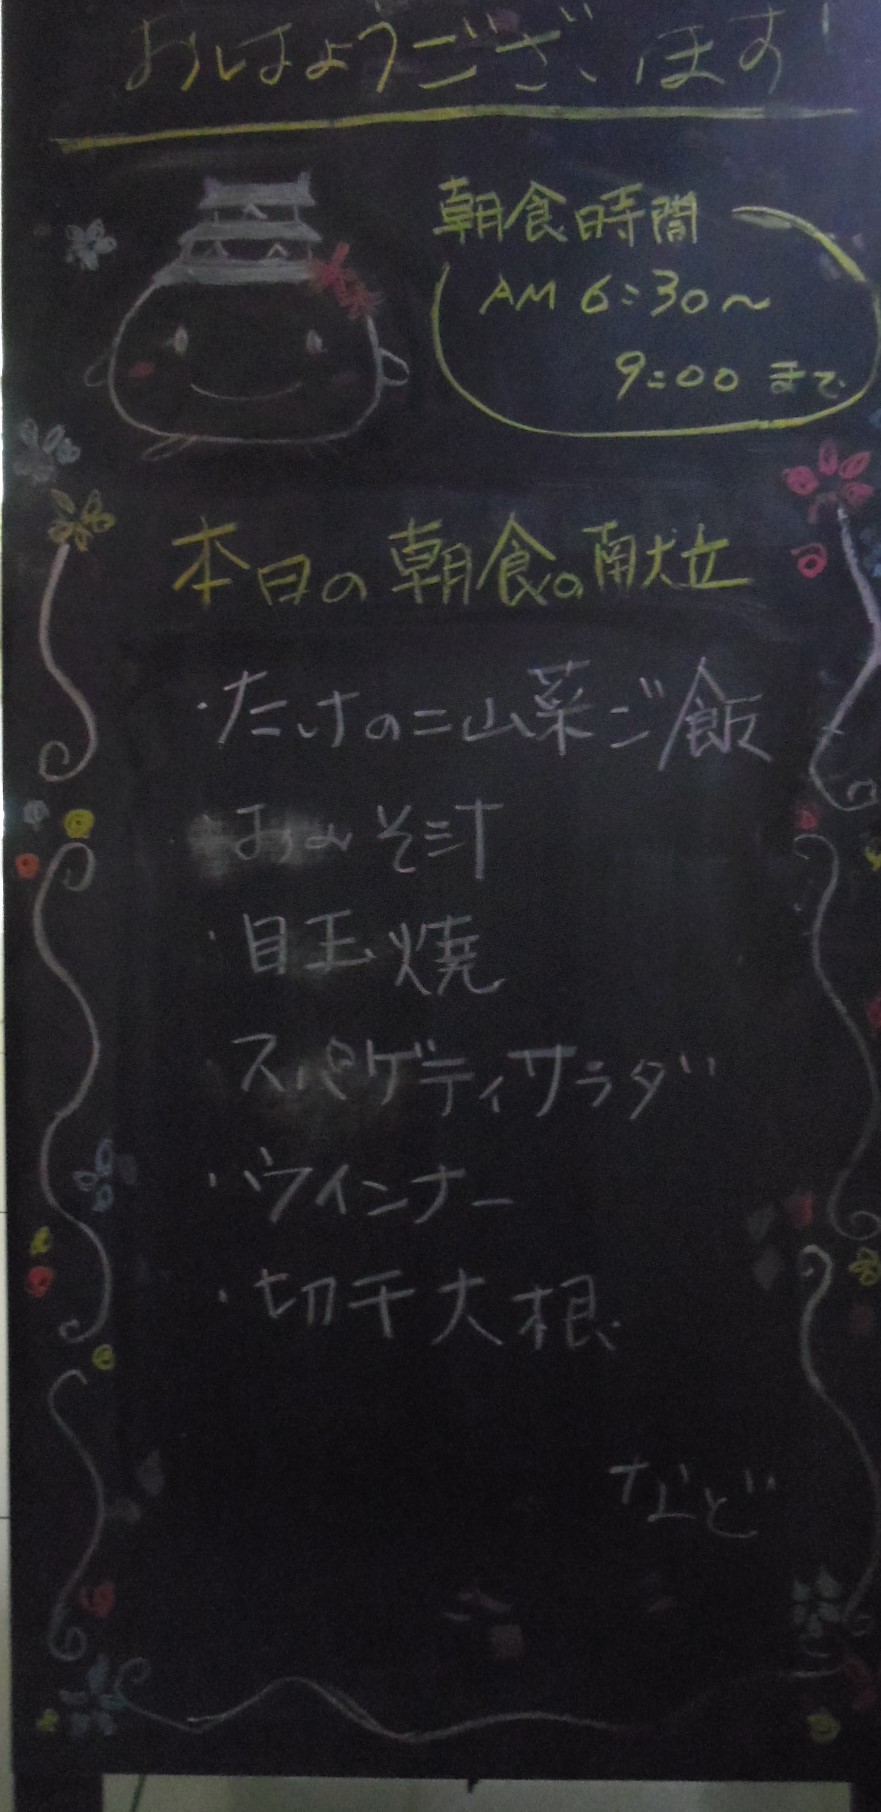 おはようございます!
朝食時間
AM 6:30〜
9:00 まで
本日の朝食の献立
・たけのこ山菜ご飯
・おみそ汁
・目玉焼
・スパゲティサラダ
・ウインナー
・切干大根
など